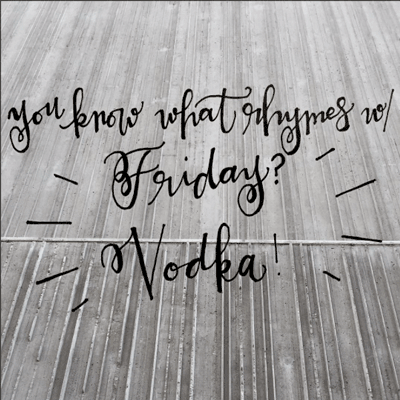 you know what rhymes w/
Friday?
Vodka!